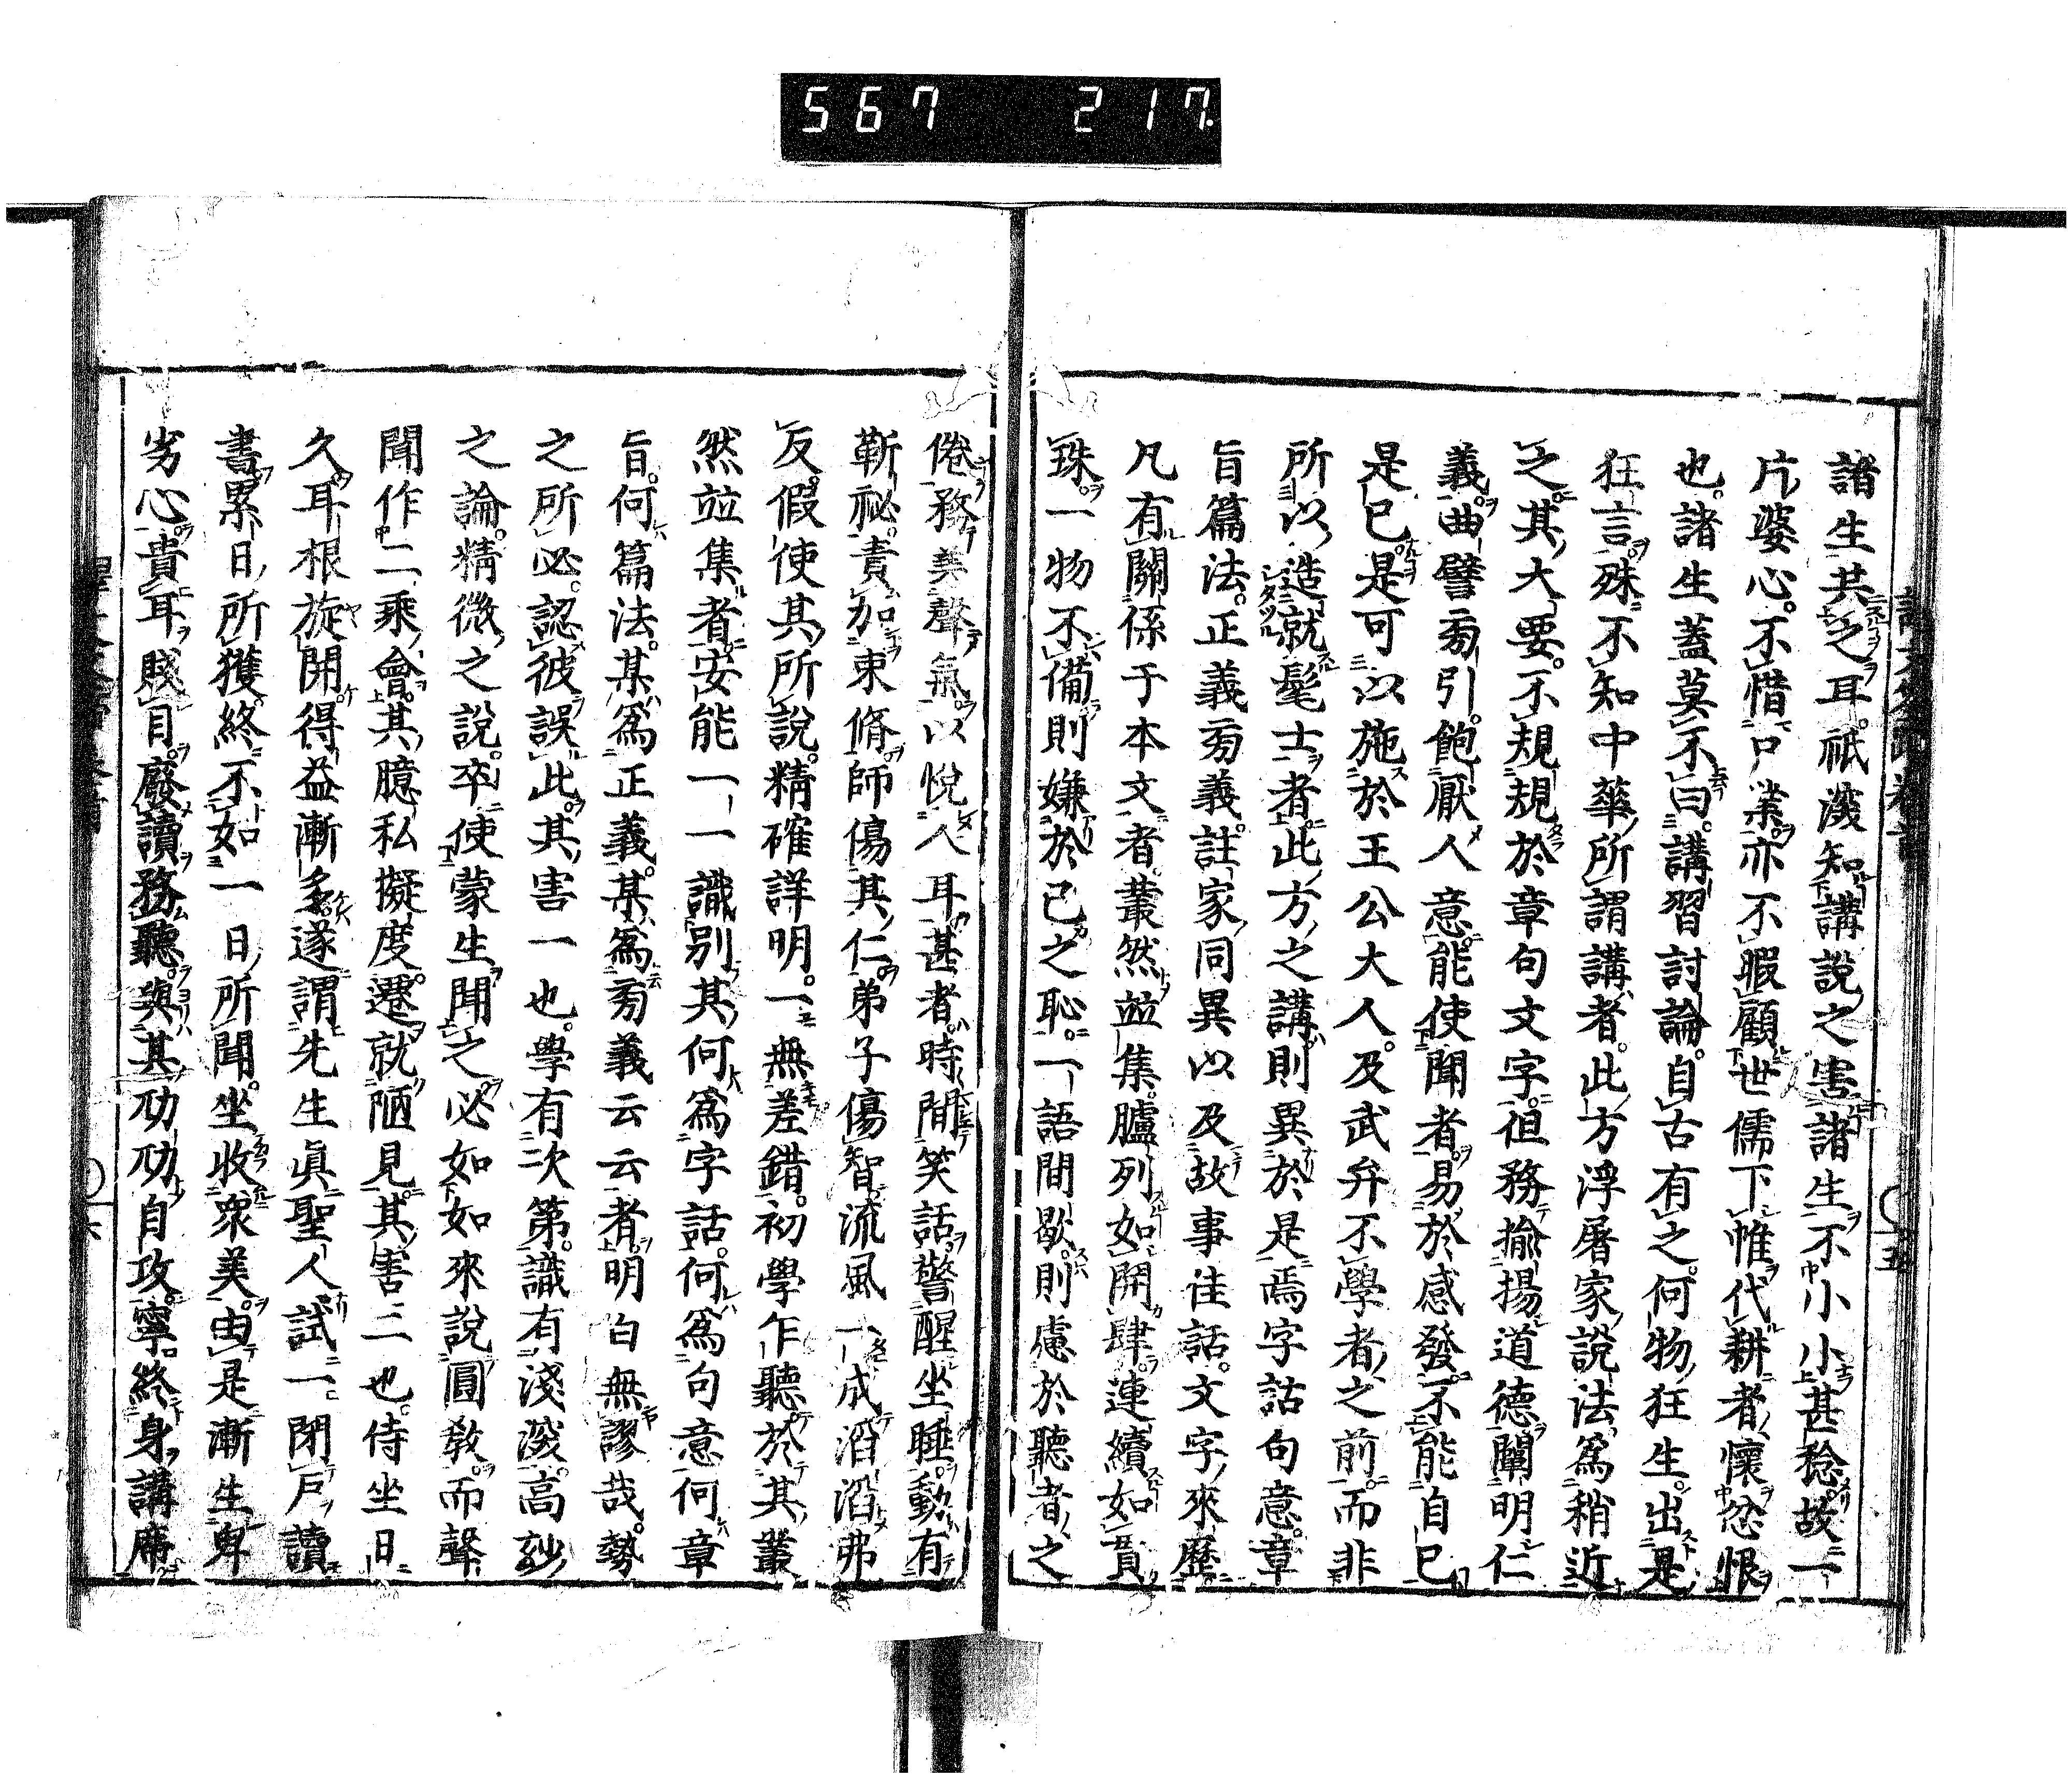 567 217.
諸生共之耳祇深知講說之害諸生不小小甚稔故一
片婆心不惜口業亦不暇顧世儒下帷代耕者懷忿恨
也諸生蓋莫不曰講習討論自古有之何物狂生出是
狂言殊不知中華所謂講者此方浮屠家說法爲稍近
之其大要不規規於章句文字但務揄揚道德闡明仁
義曲譬旁引飽厭人意能使聞者易於感發不能自已
是已是可以施於王公大人及武弁不學者之前而非
所以造就髦士者此方之講則異於是焉字詁句意章
旨篇法正義旁義註家同異以及故事佳話文字來歷
凡有關係于本文者叢然竝集臚列如開肆連續如貫
珠一物不備則嫌於己之恥一語間歇則慮於聽者之
倦務美聲氣以悅人耳甚者時間笑話警醒坐睡動有
靳祕責加束脩師傷其仁弟子傷智流風一成滔滔弗
反假使其所說精確詳明一無差錯初學乍聽於其叢
然竝集者安能一一識別其何爲字詁何爲句意何章
旨何篇法某爲正義某爲旁義云云者明白無謬哉勢
之所必認彼誤此其害一也學有次第識有淺深高玅
之論精微之說卒使蒙生聞之必如如來說圓敎而聲
聞作二乘會其臆私擬度遷就陋見其害二也侍坐日
久耳根旋開得益漸多遂謂先生眞聖人試一閉戶讀
書累日所獲終不如一日所聞坐收衆美由是漸生卑
劣心貴耳賤目廢讀務聽與其劤劤自攻寧終身講席